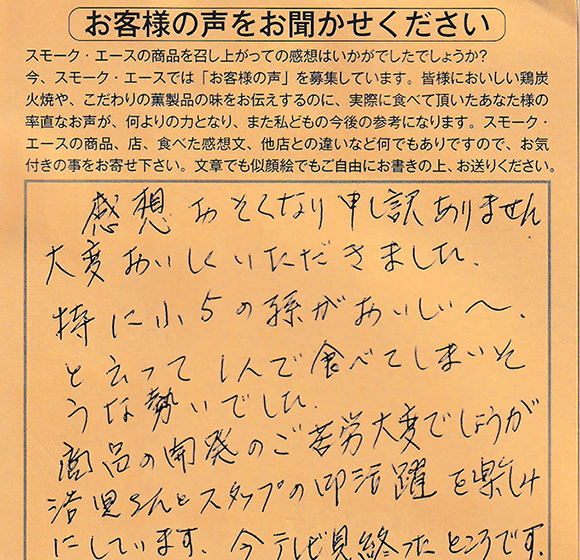 お客様の声をお聞かせください
スモーク・エースの商品を召し上がっての感想はいかがでしたでしょうか?
今、スモーク・エースでは「お客様の声」を募集しています。皆様においしい鶏炭
火焼や、こだわりの薫製品の味をお伝えするのに、実際に食べて頂いたあなた様の
率直なお声が、何よりの力となり、また私どもの今後の参考になります。スモーク・
エースの商品、店、食べた感想文、他店との違いなど何でもありですので、お気
付きの事をお寄せ下さい。文章でも似顔絵でもご自由にお書きの上、お送りください。
感想おそくなり申し訳ありません
大変おいしくいただきました.
特に小5の孫がおいしい〜.
と云って1人で食べてしまいそ
うな勢いでした.
商品の開発のご苦労大変でしょうが
さんとスタッフの御活躍を楽しみ
にしています. 今テレビ見終ったところです.